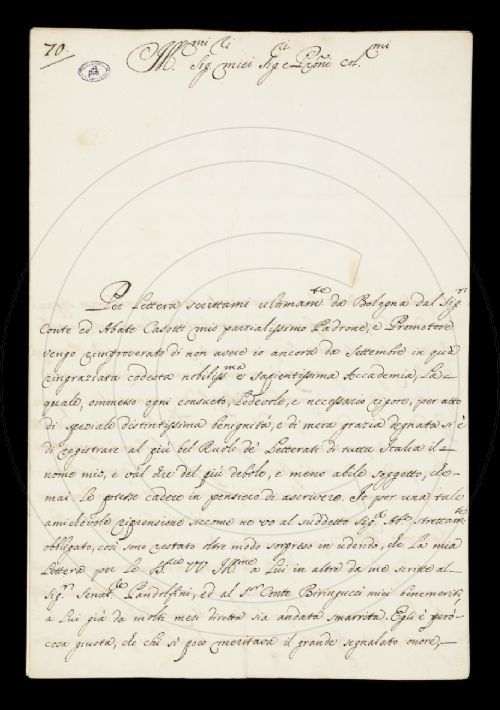 70.
Ill.mi Sig.ri
miei Sig.ri e P̃roñi Col.mi
Per Lettera scrittami ultimam.te da Bologna dal Sig.r
Conte ed Abate Casotti mio parzialissimo Padrone, e Promotore
vengo rimproverato di non avere io ancora da Settembre in quà
ringraziata codesta nobiliss.ma e Sapientissima Accademia, la
quale, ommesso ogni consueto, lodevole, e necessario rigore, per atto
di speziale distintissima benignità, e di mera grazia degnata si è
di registrare al più bel Ruolo de' Letterati di tutta Italia il
nome mio, e val dire del più debole, e meno abile soggetto, che
mai le potesse cadere in pensiero di ascrivere. Io per una tale
amichevole riprensione siccome ne vo al suddetto Sig.r Ab.e strettam.te
obbligato, così sono restato oltre modo sorpreso in udendo, che la mia
Lettera per le VV. Ill.me a Lui in altre da me scritte al
Sig.r Senat.re Pandolfini, ed al S.r Conte Biringucci miei benemeriti
a Lui già da molti mesi diretta sia andata smarrita. Egli è però
cosa giusta, che chi si poco meritava il grande segnalato onore,